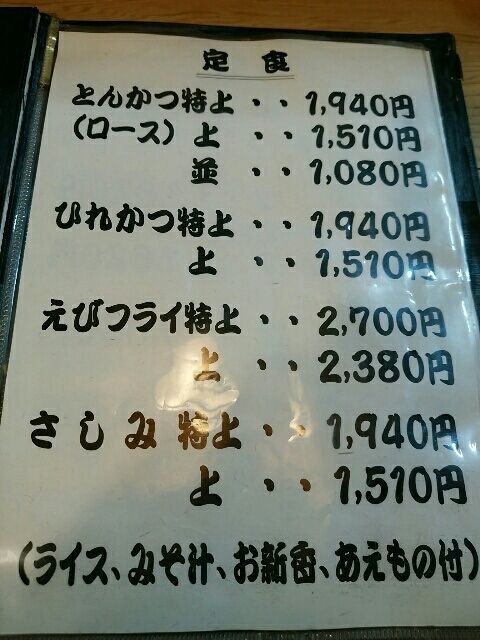 定食
とんかつ特上・・1,940円
(ロース) 上・・1,510円
並・・1,080円
ひれかつ特上・・1,940円
上・・1,510円
えびフライ特上・・2,700円
上・・2,380円
さしみ特上・・1,940円
上・・1,510円
(ライス、みそ汁、お新香、あえもの付)